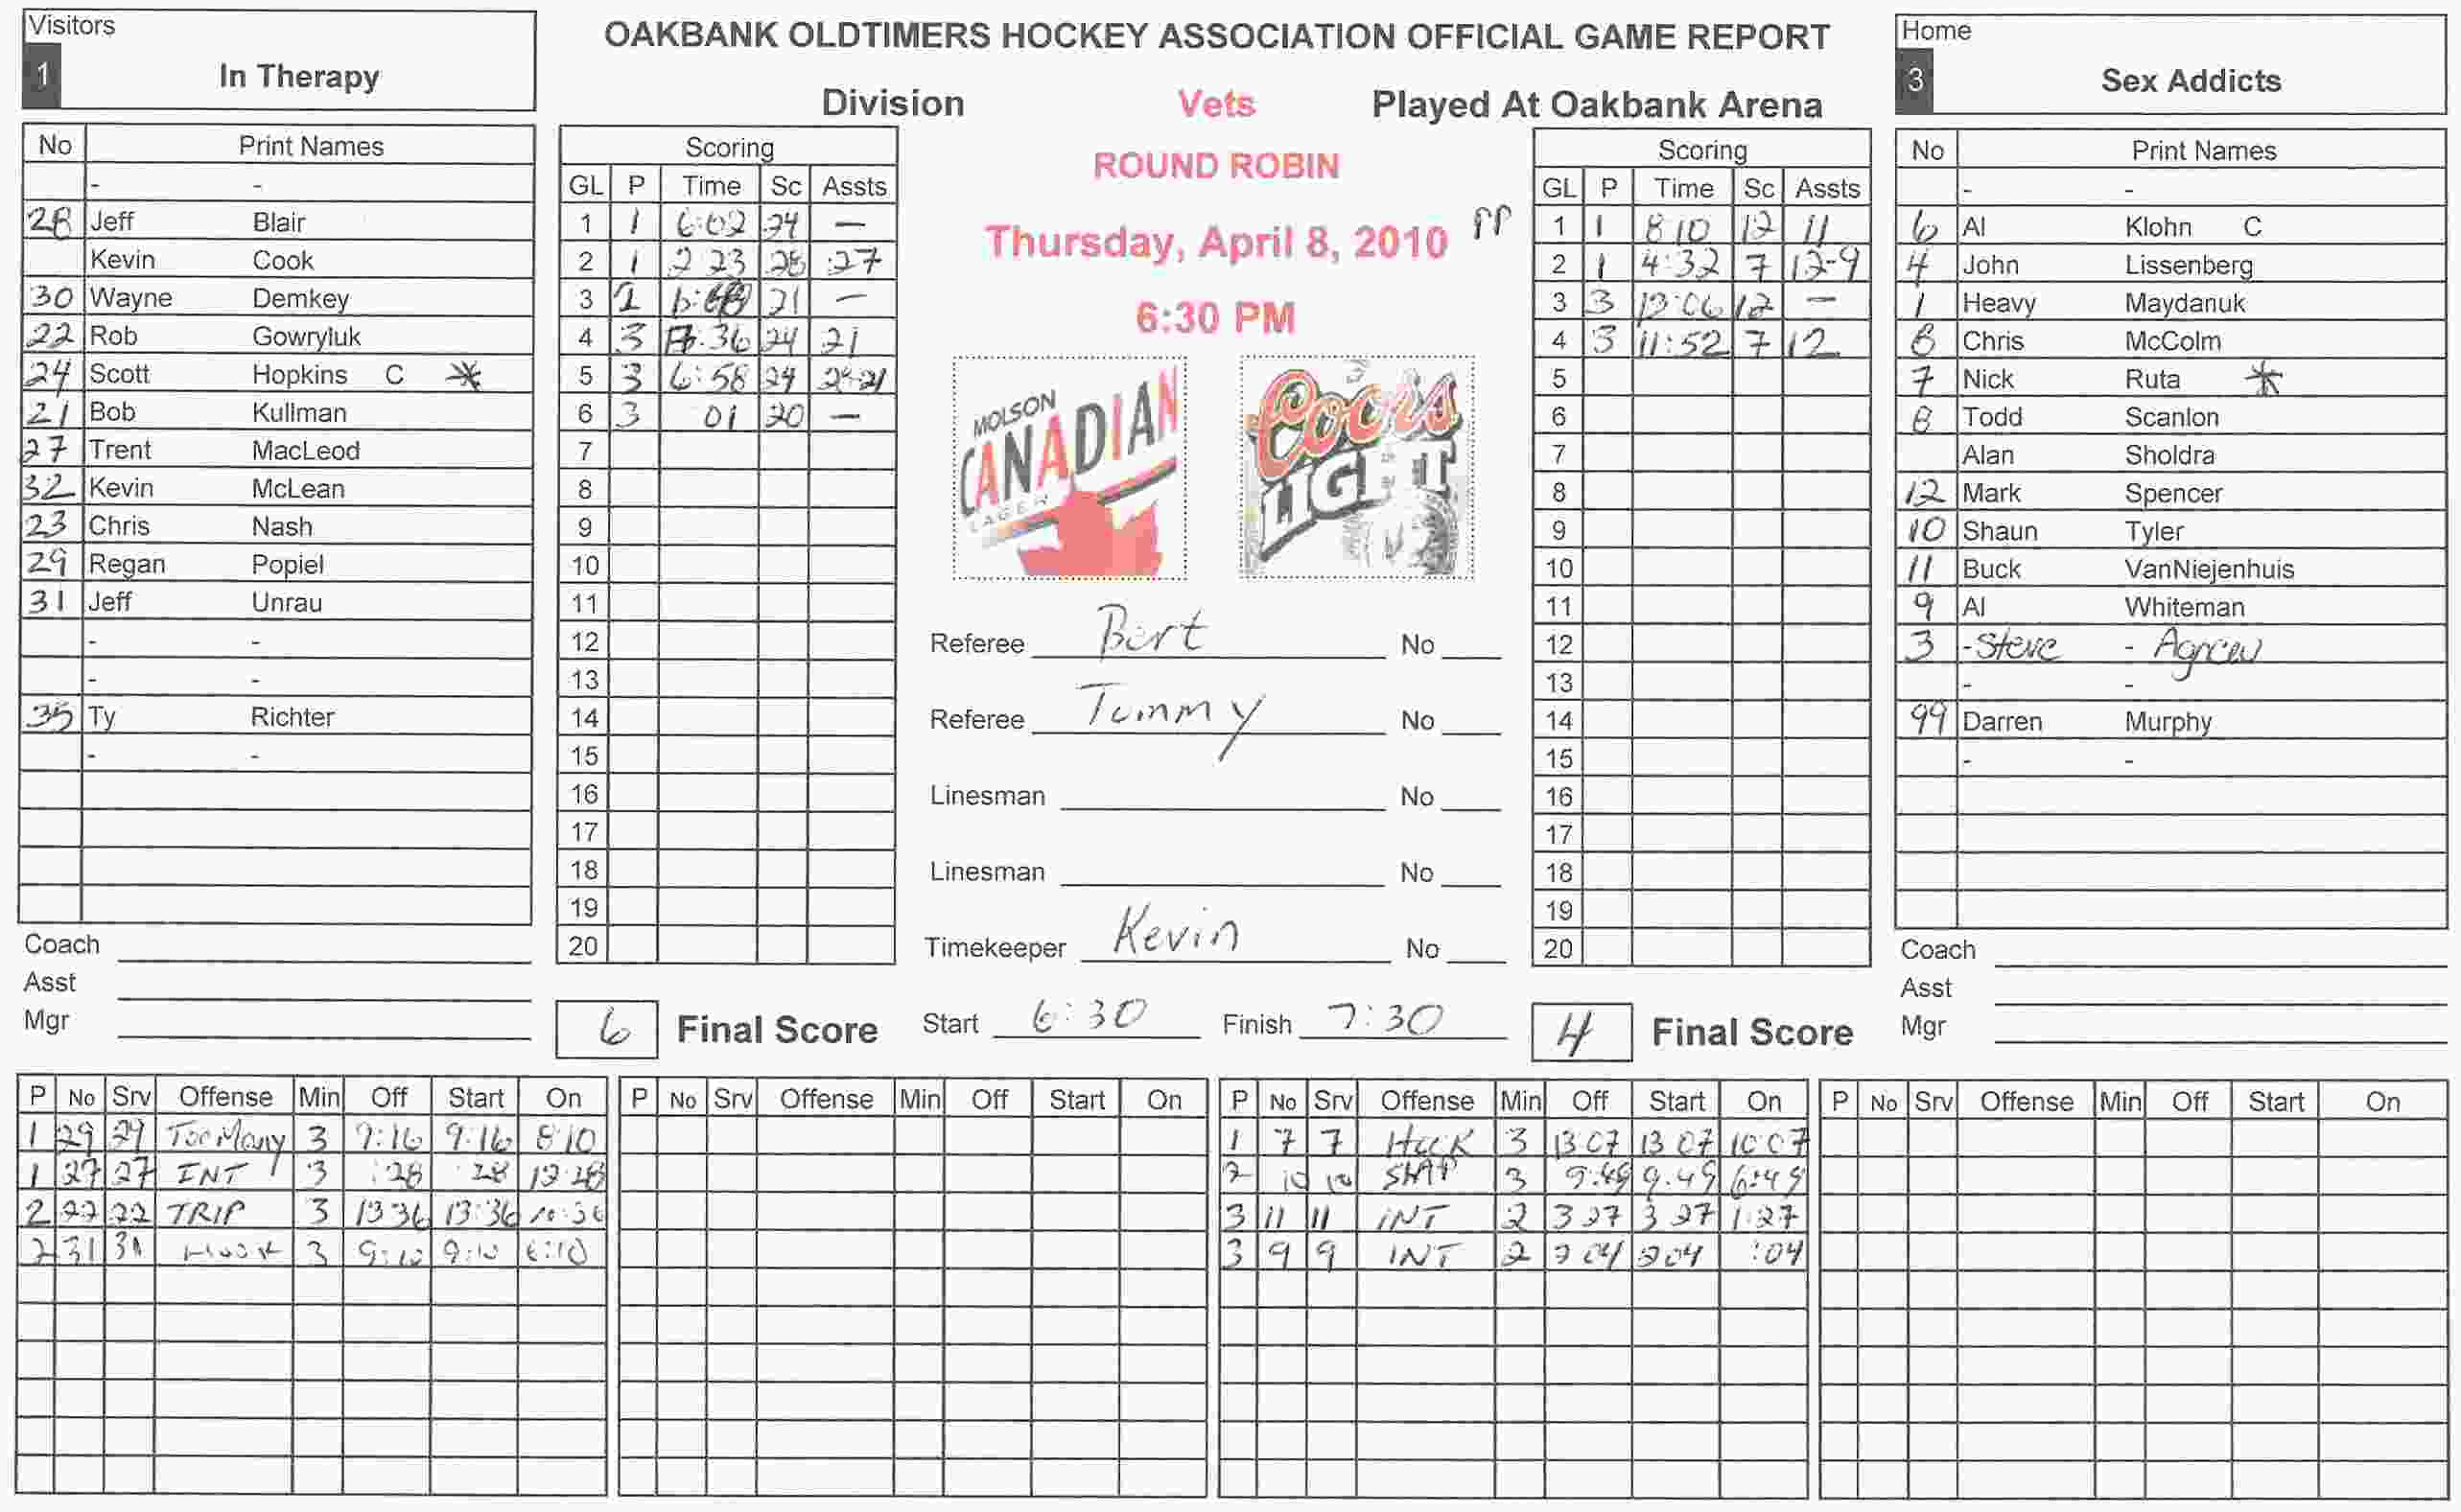 Visitors
1 In Therapy
OAKBANK OLDTIMERS HOCKEY ASSOCIATION OFFICIAL GAME REPORT
Division Vets Played At Oakbank Arena
ROUND ROBIN
Thursday, April 8, 2010
6:30 PM
Home
3 Sex Addicts
No Print Names
- -
28 Jeff Blair
Kevin Cook
30 Wayne Demkey
22 Rob Gowryluk
24 Scott Hopkins C *
21 Bob Kullman
27 Trent MacLeod
32 Kevin McLean
23 Chris Nash
29 Regan Popiel
31 Jeff Unrau
- -
- -
35 Ty Richter
- -
Coach
Asst
Mgr
Scoring
GL P Time Sc Assts
1 1 6:02 24 —
2 1 2 23 28 27
3 21 —
4 3 :36 24 21
5 3 6:58 24 29-21
6 3 01 20 —
7
8
9
10
11
12
13
14
15
16
17
18
19
20
6 Final Score
MOLSON
CANADIAN
LAGER
Coors
LIGHT
Referee Bert No
Referee Tommy No
Linesman No
Linesman No
Timekeeper Kevin No
Start 6:30 Finish 7:30
Scoring
GL P Time Sc Assts
PP 1 1 8 10 12 11
2 1 4:32 7 12-9
3 3 12:06 12 —
4 3 11:52 7 12
5
6
7
8
9
10
11
12
13
14
15
16
17
18
19
20
4 Final Score
No Print Names
- -
6 Al Klohn C
4 John Lissenberg
1 Heavy Maydanuk
8 Chris McColm
7 Nick Ruta *
8 Todd Scanlon
Alan Sholdra
12 Mark Spencer
10 Shaun Tyler
11 Buck VanNiejenhuis
9 Al Whiteman
3 - Steve - Agnew
- -
99 Darren Murphy
- -
Coach
Asst
Mgr
P No Srv Offense Min Off Start On
1 29 29 Too Many 3 9:16 9:16 8 10
1 27 27 INT 3 :28 28 12 28
2 22 22 TRIP 3 13 36 13:36 10:36
2 31 31 Hook 3 9:10 9:10 6:10
P No Srv Offense Min Off Start On
P No Srv Offense Min Off Start On
1 7 7 HOOK 3 13 07 13 07 10 07
2 10 10 3 9:49 9:49 6:49
3 11 11 INT 2 3 27 3 27 1:27
3 9 9 INT 2 2 04 2 04 :04
P No Srv Offense Min Off Start On